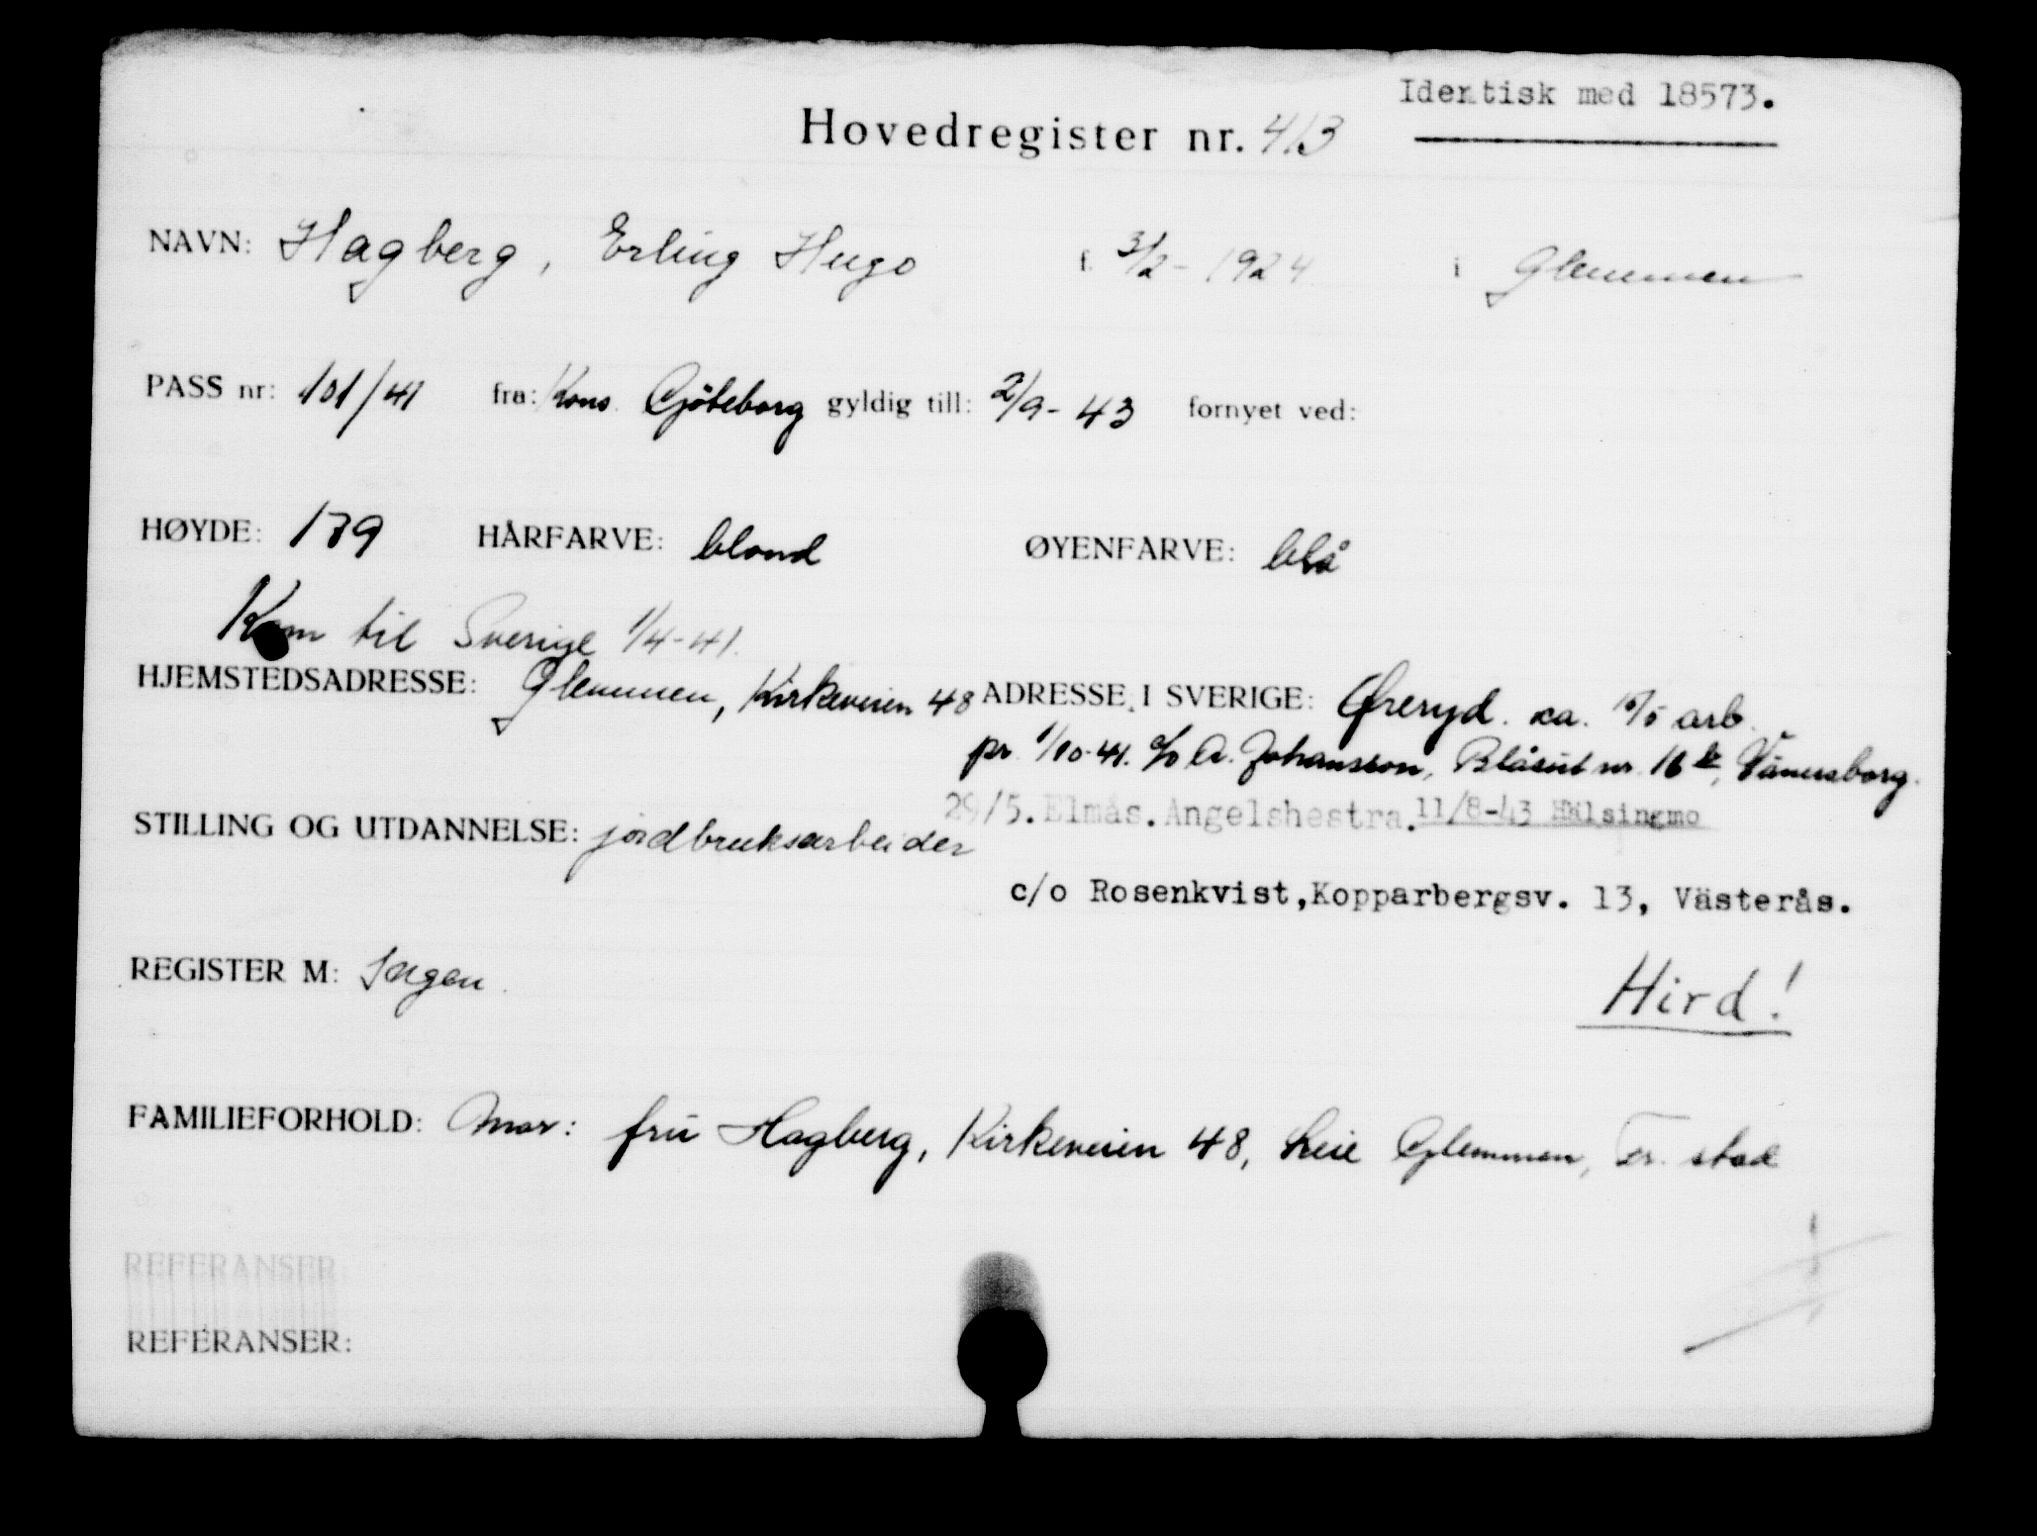 Identisk med 18573.
Hovedregister nr. 413
NAVN: Hagberg, Erling Hugo f. 3/2-1924 i Glemmen
PASS nr: 101/41 fra: Kons. Göteborg gyldig till: 2/9-43 fornyet ved:
HØYDE: 179 HÅRFARVE: blond ØYENFARVE: blå
Kom til Sverige 1/4-41.
HJEMSTEDSADRESSE: Glemmen, Kirkeveien 48 ADRESSE I SVERIGE: Øreryd. ca. 10/5 arb.
pr. 1/10-41. c/o A. Johansson, Blåsut nr. 16, Vänersborg.
29/5. Elmås. Angelshestra. 11/8-43 Hälsingmo
STILLING OG UTDANNELSE: jordbruksarbeider
c/o Rosenkvist, Kopparbergsv. 13, Västerås.
REGISTER M: Ingen.
Hird!
FAMILIEFORHOLD: Mor: fru Hagberg, Kirkeveien 48, Leie Glemmen, Fr. stad
REFERANSER
REFERANSER: